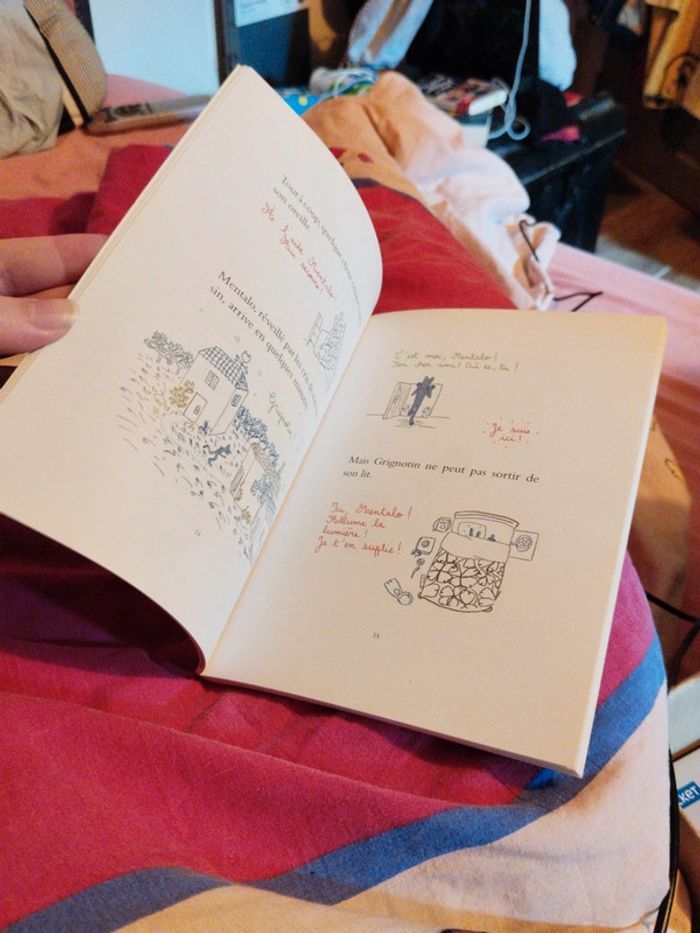 Tout à coup, quelque chose
son oreille.
À l'aide Mentalo!
Mentalo, réveillé par les cris de
sin, arrive en quelques minutes.
Grignotin
14
C'est moi, Mentalo!
Ton cher ami! Où es-tu?
Je suis
ici!
Mais Grignotin ne peut pas sortir de
son lit.
Ici, Mentalo!
Allume la
lumière!
Je t'en supplie!
15